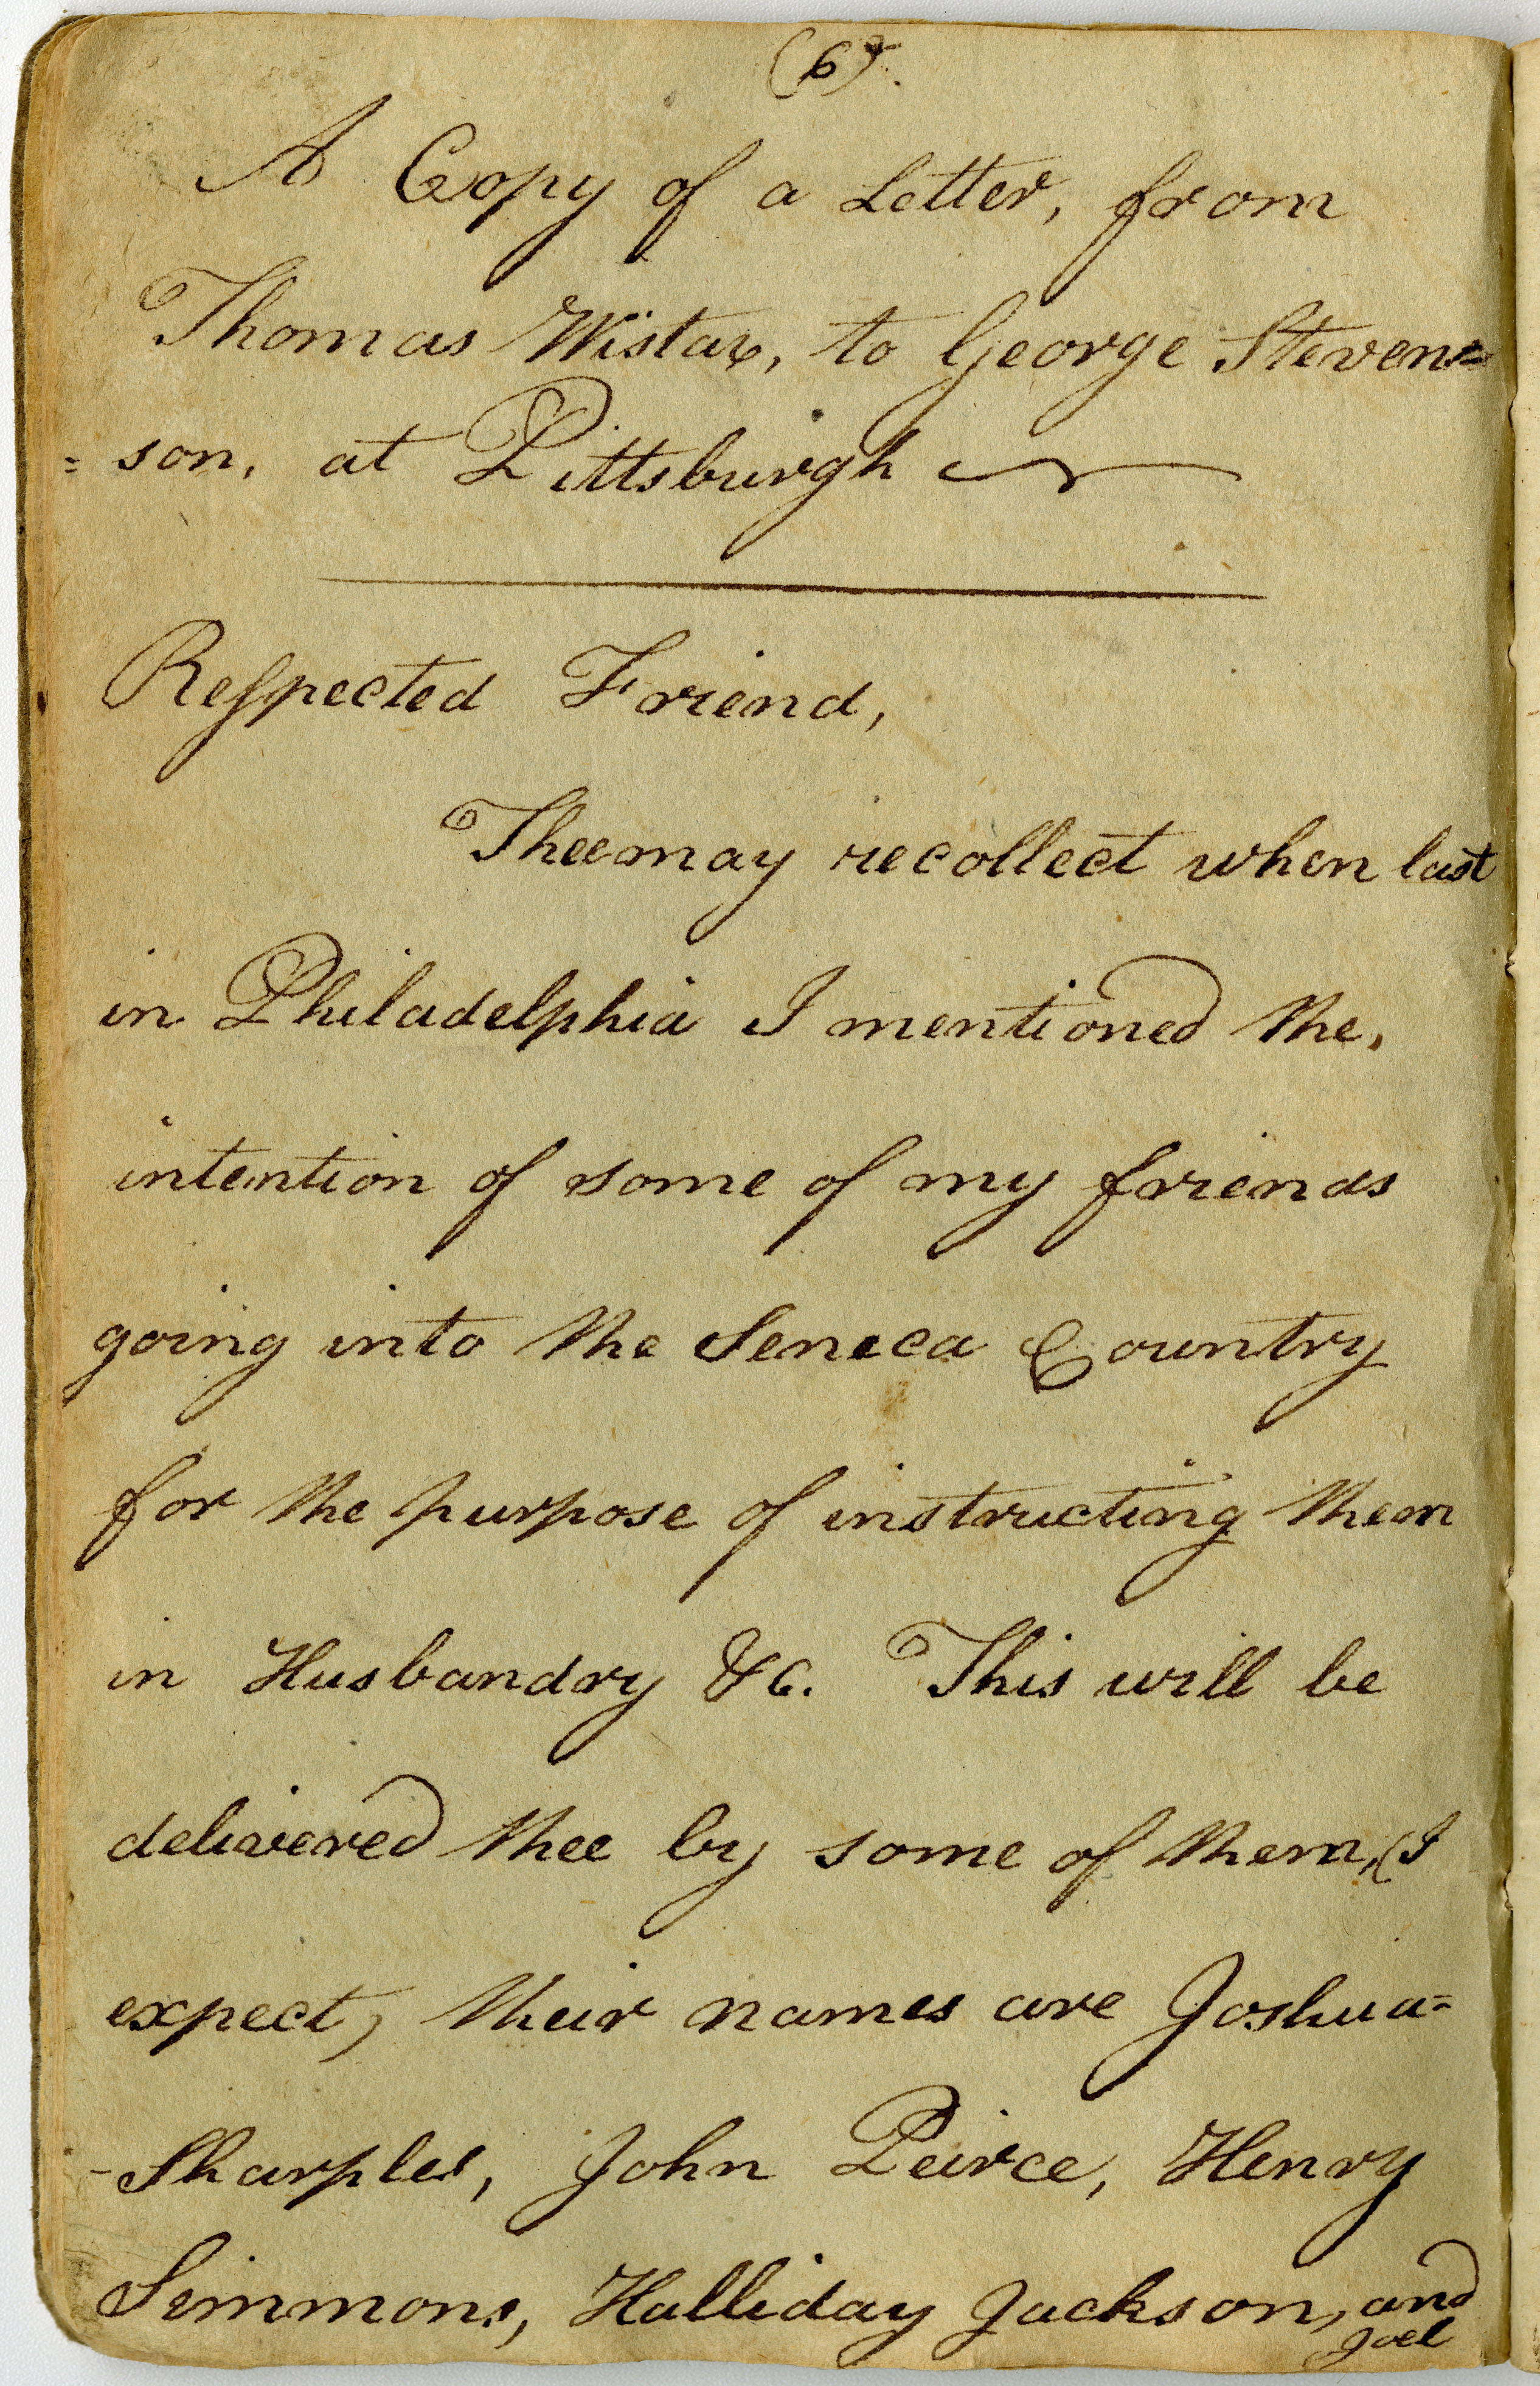 (6).
A Copy of a Letter, from
Thomas Wistar, to George Steven=
=son, at Pittsburgh
Respected Friend,
Thee may recollect when last
in Philadelphia I mentioned the,
intention of some of my friends
going into the Seneca Country
for the purpose of instructing them
in Husbandry &c. This will be
delivered thee by some of them, (I
expect) their names are Joshua=
-Sharples, John Peirce, Henry
Simmons, Halliday Jackson, and
Joel